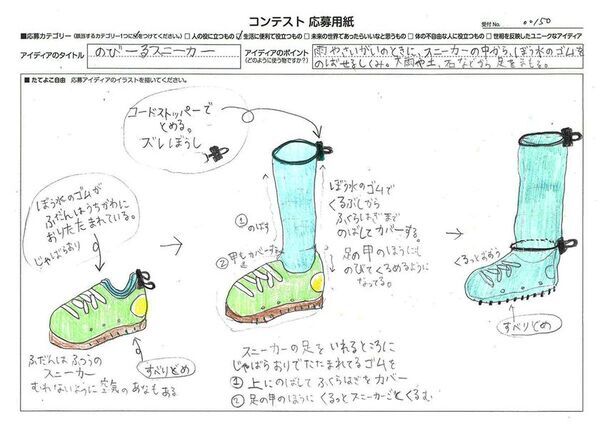 コンテスト 応募用紙
受付No. 00150
■応募カテゴリー(該当するカテゴリー1つに✓をつけてください。) □人の役に立つもの ☑生活に便利で役立つもの □未来の世界であったらいいなと思うもの □体の不自由な人に役立つもの □世相を反映したユニークなアイディア
アイディアのタイトル のびーるスニーカー
アイディアのポイント
(どのように使う物ですか?)
雨やさいがいのときに、スニーカーの中から、ぼう水のゴムを
のばせるしくみ。大雨や土、石などから足をまもる。
■たてよこ自由 応募アイディアのイラストを描いてください。
コードストッパーで
とめる。
ズレぼうし
ぼう水のゴムが
ふだんはうちがわに
おりたたまれている。
じゃばらおり
ふだんはふつうの
スニーカー
むれないように空気のあなもある
すべりどめ
①のばす
②甲もカバーする
ぼう水のゴムで
くるぶしから
ふくらはぎまで
のばしてカバーする。
足の甲のほうにも
のびてくるめるように
なってる。
スニーカーの足をいれるところに
じゃばらおりでたたまれてるゴムを
①上にのばしてふくらはぎをカバー
②足の甲のほうにくるっとスニーカーごとくるむ
くるっとおおう
すべりどめ